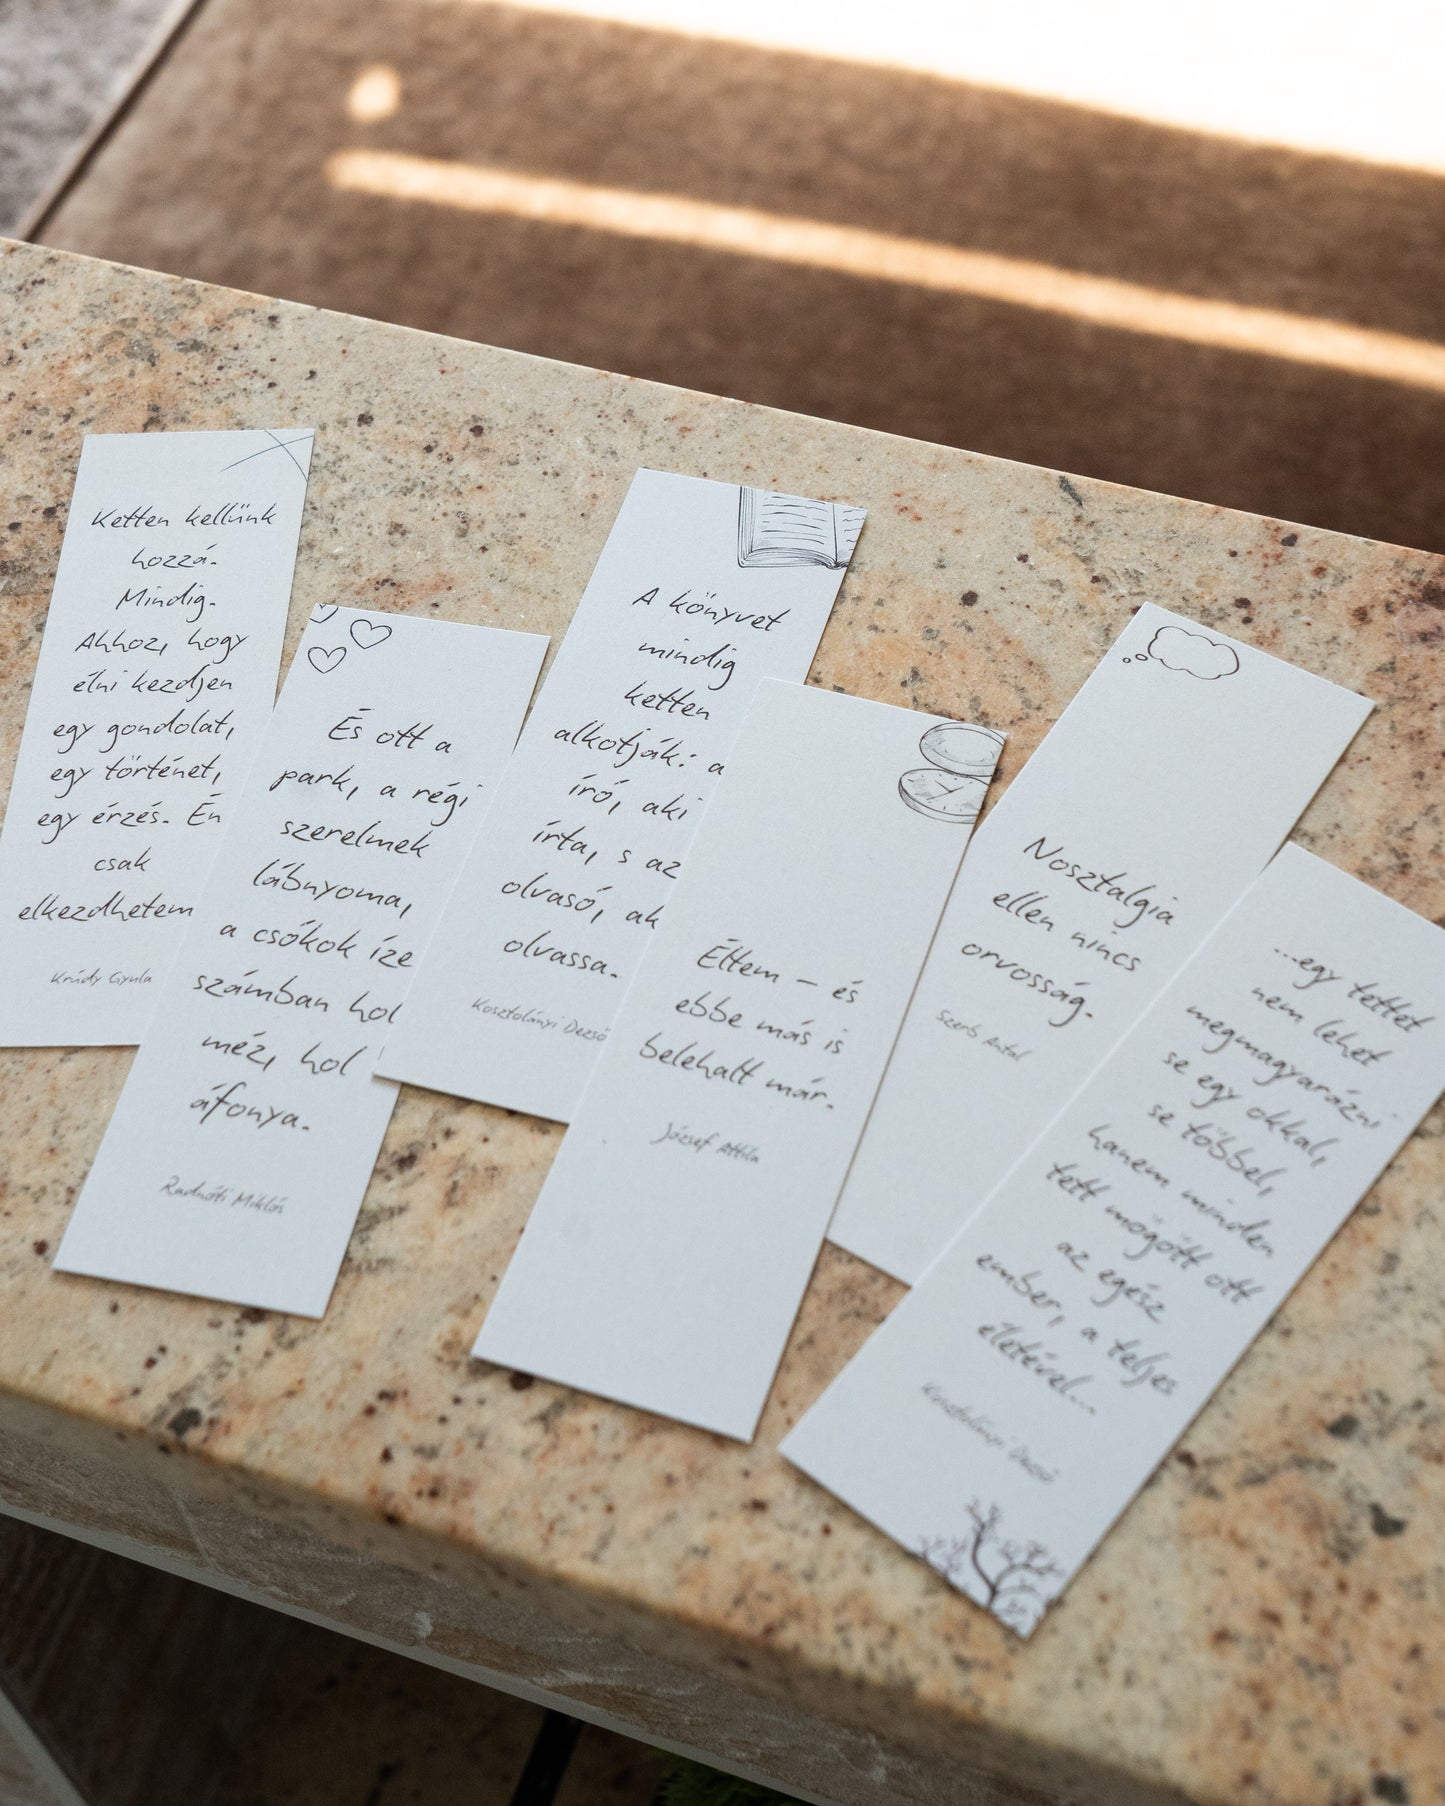 Ketten kellünk
hozzá.
Mindig.
Ahhoz, hogy
élni kezdjen
egy gondolat,
egy történet,
egy érzés. Én
csak
elkezdhetem
Krúdy Gyula
És ott a
park, a régi
szerelmek
lábnyoma,
a csókok íze
számban hol
méz, hol
áfonya.
Radnóti Miklós
A könyvet
mindig
ketten
alkotják: a
író, aki
írta, s az
olvasó, ak
olvassa.
Kosztolányi Dezső
Éltem – és
ebbe más is
belehalt már.
József Attila
Nosztalgia
ellen nincs
orvosság.
Szerb Antal
...egy tettet
nem lehet
megmagyarázni
se egy okkal,
se többel,
hanem minden
tett mögött ott
az egész
ember, a teljes
életével...
Kosztolányi Dezső